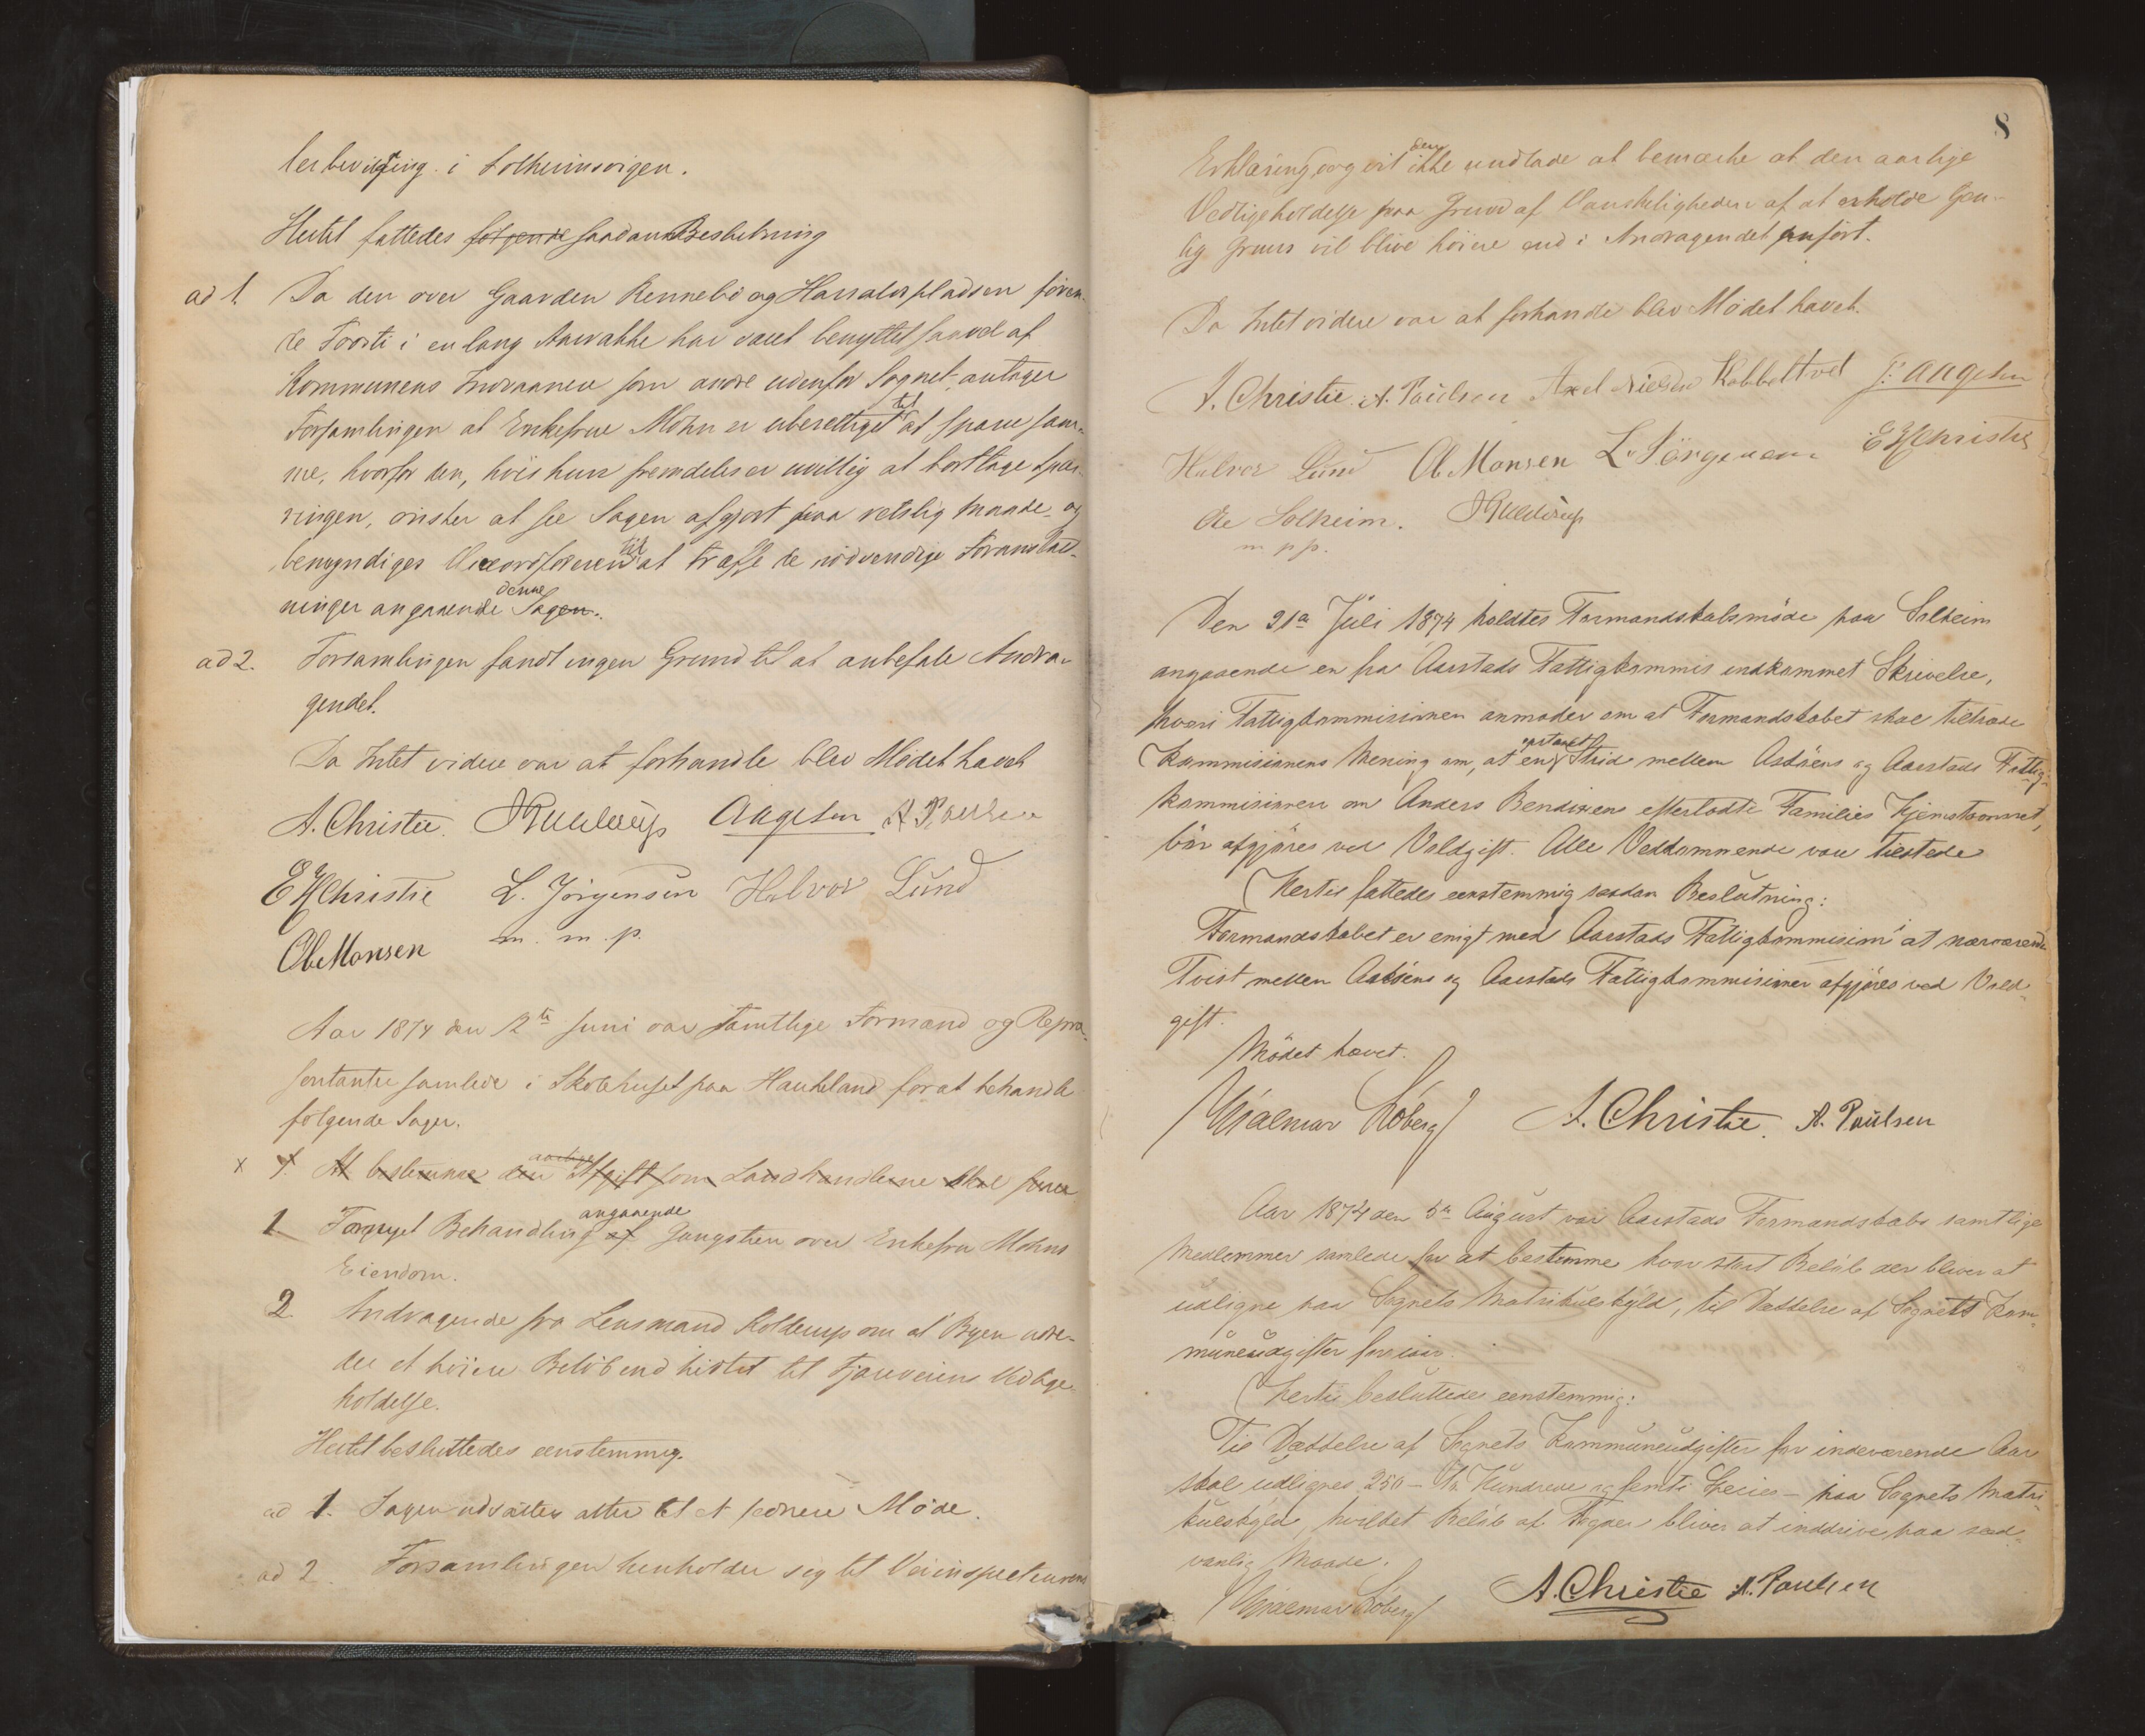 lerbevilgting i Solheimsvigen.
Hertil fattedes følgende saadan Beslutning
ad 1. Da den over Gaarden Rennebø og Haraldspladsen føren-
de Foosti i en lang Aarrække har været benyttet saavel af
Kommunens Indvaanere som andre udenfor Sognet, antager
Forsamlingen at Enkefrue Mohn er uberettiget til at spærre sam-
me, hvorfor den, hvis hun fremdeles er uvillig at borttage Spær-
ringen, ønsker at see Sagen afgjort paa retslig Maade og
bemyndiges Viceordføreren til at træffe de nødvendige Foranstalt-
ninger angaaende denne Sagen.
ad 2. Forsamlingen fandt ingen Grund til at anbefale Andra-
gendet.
Da Intet videre var at forhandle blev Mødet hævet
A. Christie. Aagesen A. Paulsen
E Christie L. Jörgensen Halvor Lund
Ole Monsen m. m. p.
Aar 1874 den 12te Juni var samtlige Formænd og Repræ-
sentanter samlede i Skolehuset paa Haukeland for at behandle
følgende Sager.
x 1. At bestemme den aarlige Afgift som Landhandlerne skal svare
1 Fornyet Behandling af angaaende Gangstien over Enkefru Mohns
Eiendom.
2 Andragende fra Lensmand Kolderup om at Byen udre-
der et høiere Beløb end hidtil til Fjøsveiens Vedlige-
holdelse.
Hertil besluttedes eenstemmig.
ad 1. Sagen udsættes atter til et senere Møde.
ad 2. Forsamlingen henholder sig til Veiinspecteurens
8
Erklæring og vil dem ikke undlade at bemærke at den aarlige
Vedligeholdelse paa Grund af Vanskeligheden af at erholde tjen-
lig Gruus vil blive høiere end i Andragendet anført.
Da Intet videre var at forhandle blev Mødet hævet.
A. Christie. A. Paulsen Axel Nielsen Kobbeltvedt J: Aagesen
Halvor Lund Ole Monsen L. Jörgensen E Christie
Ole Solheim.
m. p p.
Den 21de Juli 1874 holdtes Formandskabsmöde paa Solheim
angaaende en fra Aarstads Fattigkommis indkommet Skrivelse,
hvori Fattigkommisionen anmoder om at Formandskabet skal tiltræde
Kommisionens Mening om, at en opstaaet Strid mellem Asköens og Aarstads Fattig-
kommisioner om Anders Bendixens efterladte Families Hjemstavnsret,
bör afgjöres ved Voldgift. Alle Vedkommende vare tilstede
Hertil fattedes eenstemmig saadan Beslutning:
Formandskabet er enigt med Aarstads Fattigkommision i at nærværende
Tvist mellem Asköens og Aarstads Fattigkommisioner afgjöres ved Vold-
gift.
Mödet hævet.
Hjalmar Löberg A. Christie. A. Paulsen
Aar 1874 den 5te August var Aarstads Formandskabs samtlige
Medlemmer samlede for at bestemme hvor stort Belöb der bliver at
udligne paa Sognets Matrikulskyld, til Dækkelse af Sognets Kom-
muneudgifter for iaar.
Hertil besluttedes eenstemmig:
Til Dækkelse af Sognets Kommuneudgifter for indeværende Aar
skal udlignes 250 – To Hundrede og femti Species – paa Sognets Matri-
kulskyld, hvilket Belöb af Fogden bliver at inddrive paa sæd-
vanlig Maade.
Hjalmar Löberg A. Christie A. Paulsen